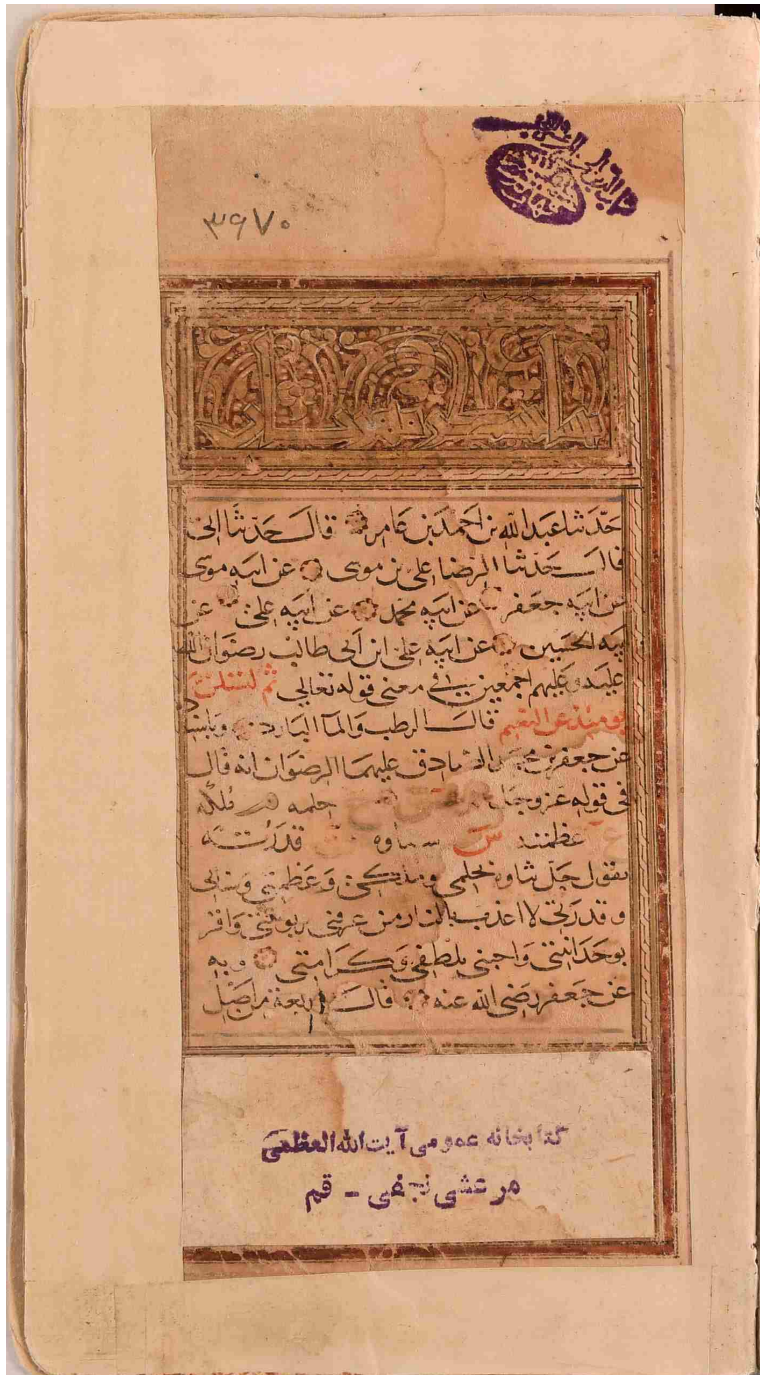 ٣٩٧٠
حدثنا عبد الله بن احمد بن عامر قال حدثنا ابى
قال حدثنا الرضا على بن موسى عن ابيه موسى
عن ابيه جعفر عن ابيه محمد عن ابيه على عن
ابيه الحسين عن ابيه على ابن ابى طالب رضوان الله
عليه وعليهم اجمعين فى معنى قوله تعالى ثم لتسئلن
يومئذ عن النعيم قال الرطب والمآ البارد
عن جعفر بن محمد الصادق عليهما الرضوان انه قال
فى قوله عز وجل حلمه ملكه
عظمته سناوه قدرته
يقول جل ثناوه بحلمى وملكى وعظمتى وسنائى
وقدرتى لا اعذب بالنار من عرفنى بربوبيتى واقر
بوحدانيتى واحبنى بلطفى وبكرامتى وبه
عن جعفر رضى الله عنه قال اربعة من اصل
كتابخانه عمومى آيت الله العظمى
مرعشى نجفى - قم